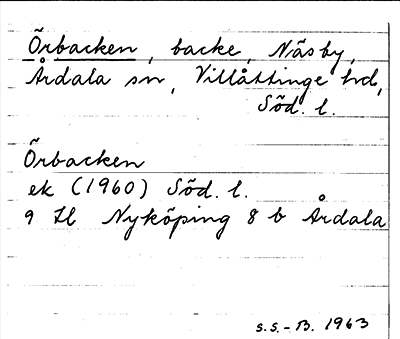 Örbacken, backe, Näsby,
Årdala sn, Villåttinge hd,
Söd. l.
Örbacken
ek (1960) Söd. l.
9 H Nyköping 8 b Årdala
S.S.-B. 1963